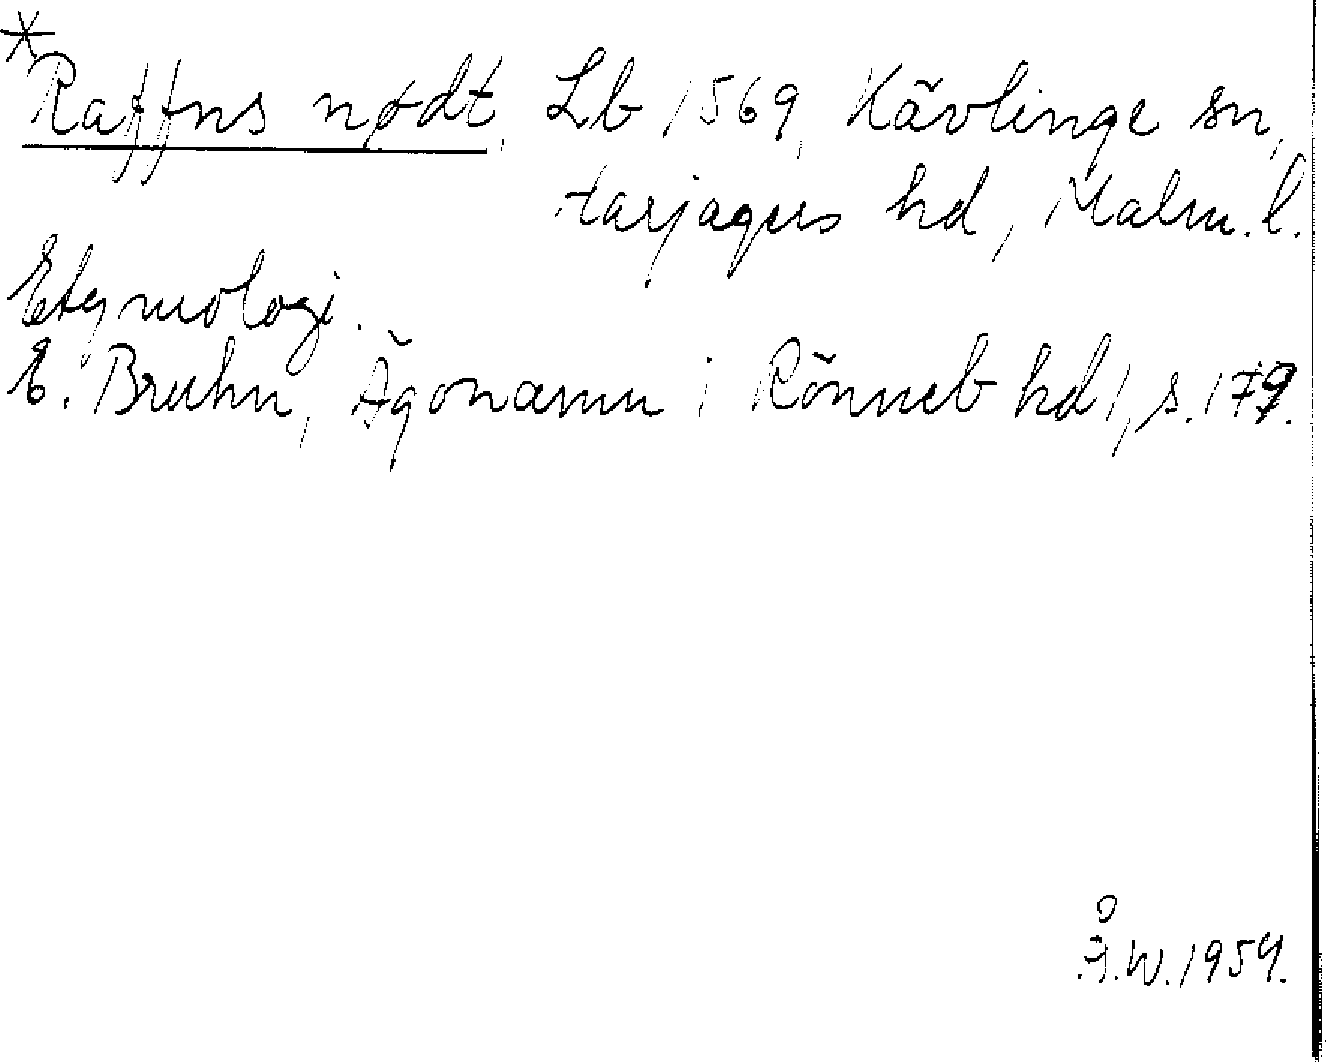 *
Raffns nødt, Lb 1569, Kävlinge sn,
Harjagers hd, Malm. l.
Etymologi.
E. Bruhn, Ägonamn i Rönneb hd 1, s. 179.
Å.W. 1954.